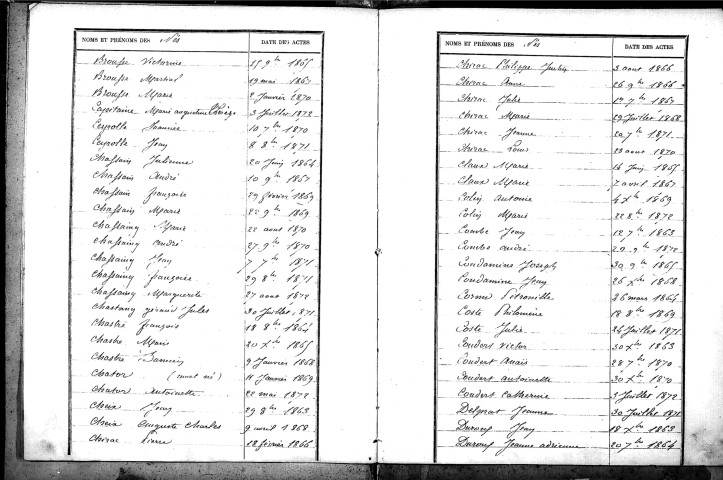 NOMS ET PRÉNOMS DES Nés DATE DES ACTES
Brousse Victorine 25 9bre 1865
Brousse Martial 19 mai 1867
Brousse Marie 2 Janvier 1870
Capitaine Marie augustine 3 Juillet 1872
Ceyrolle Jeanne 10 7bre 1870
Ceyrolle Jean 8 8bre 1871
Chassain Julienne 20 Juin 1864
Chassain André 10 9bre 1867
Chassain françoise 29 février 1869
Chassain Marie 22 9bre 1869
Chassaing Marie 22 aout 1870
Chassaing André 27 9bre 1870
Chassaing Jean 7 7bre 1871
Chassaing françoise 29 8bre 1871
Chassaing Marguerite 27 aout 1872
Chastang Jules 30 Juillet 1871
Chastre françois 18 8bre 1864
Chastre Marie 20 Xbre 1865
Chastre 9 Janvier 1868
Chator 11 Janvier 1869
Chator Antoinette 22 mai 1872
Jean 29 8bre 1863
auguste Charles 9 avril 1868
Chirac Pierre 12 février 1866
NOMS ET PRÉNOMS DES Nés DATE DES ACTES
Chirac Philippe 3 aout 1866
Chirac Anne 26 9bre 1866
Chirac Julie 7bre 1867
Chirac Marie 29 Juillet 1868
Chirac Jeanne 20 7bre 1871
Chirac Louis 23 aout 1870
Claux Marie 16 Juin 1865
Claux Marie 7 avril 1867
Colin Antoine 4 Xbre 1869
Colin Marie 22 8bre 1872
Combe Jean 12 7bre 1863
Combe André 29 9bre 1872
Condamine Joseph 30 9bre 1865
Condamine Jean 26 Xbre 1868
Petronille 26 mars 1864
Coste Philomène 18 8bre 1869
Coste Julie 24 Juillet 1871
Coudert Victor 30 Xbre 1863
Coudert Anais 28 7bre 1870
Coudert Antoinette 30 Xbre 1870
Coudert Catherine 3 Juillet 1872
Delprat Jeanne 30 Juillet 1871
Duroux Jean 18 Xbre 1863
Duroux Jeanne adrienne 20 7bre 1864